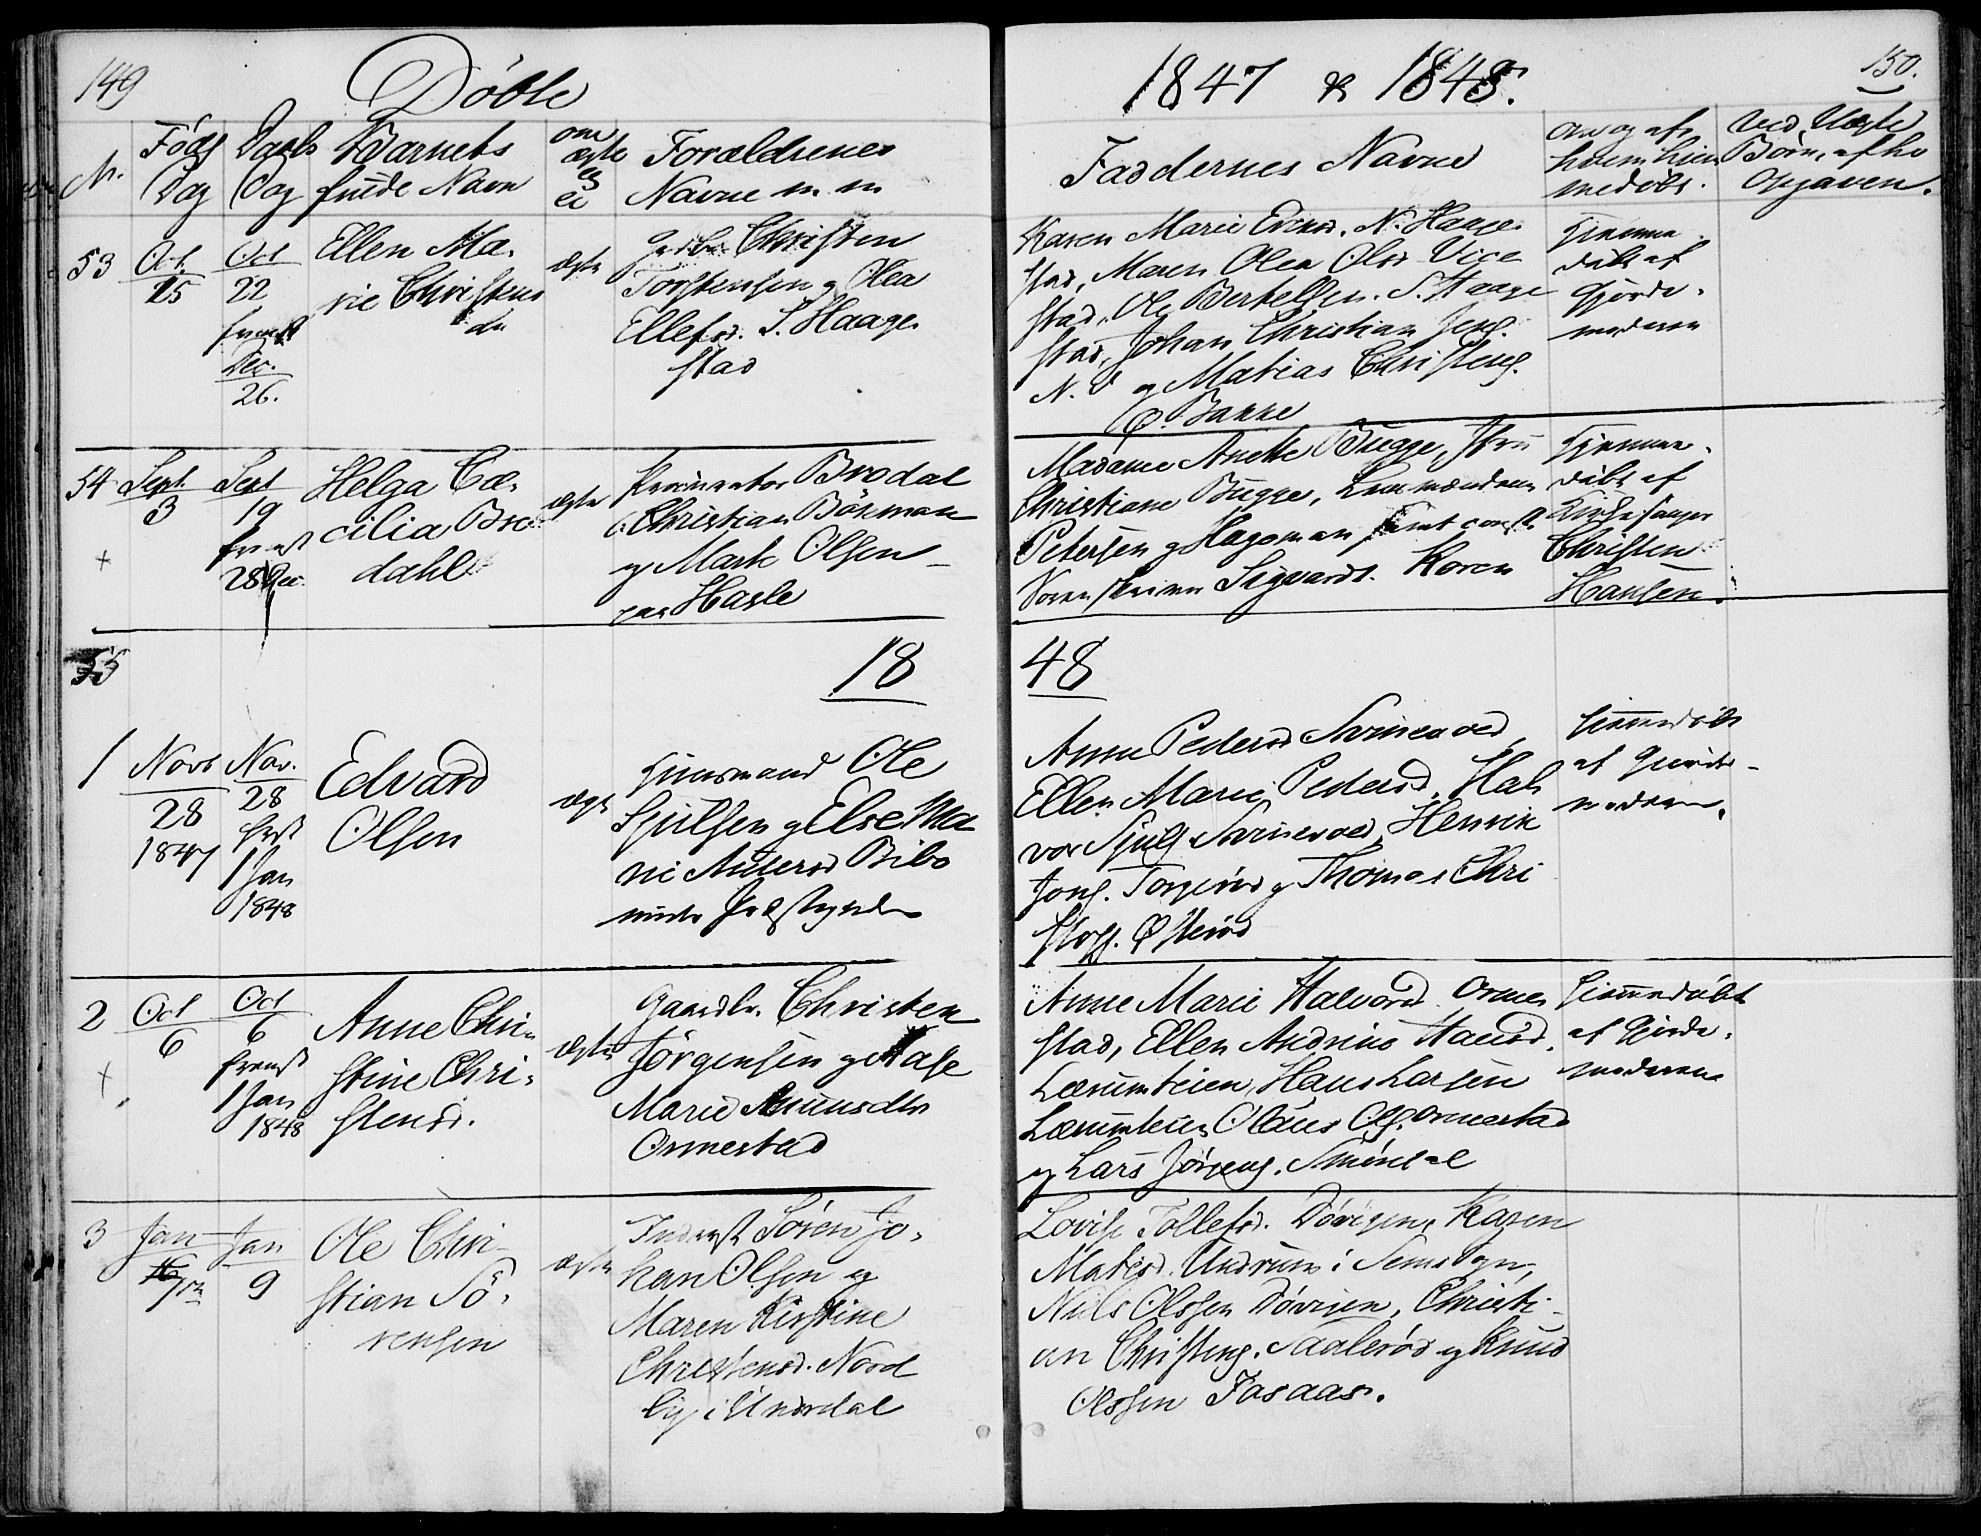 149
Döbte
1847 & 1848.
150.
N.
Föds Dag
Daabs Dag
Barnets fulde Navn
om ægte eller ei
Forældrenes Navne m. m
Faddernes Navne
Om og af hvem hjemmedöbt.
Ved Uægte Börn,
Opgaven.
53
Oct. 15
Oct 22
fremst
Dec. 26.
Ellen Ma-
rie Christens
dr
ægte
Gdbr. Christen
Torstensen g Olea
Ellefsd. S. Haage
stad
Karen Marie Evensd. N. Haage
stad, Maren Olea Olsd Vice
stad, Ole Bertelsen. S. Haage
stad, Johan Christian Jens.
N. V g Matias Christens.
Ø. Bakke
Hjemme
döbt af
Gjorde-
moderen
54
Sept. 3
Sept 19
fremst
28 Dec.
+
Helga Cæ-
cilia Bro
dahl
ægte
Procurator Brodal
Christian Böhman
g Marte Olsen
paa Hasle
Madame Anette Bugge, Jfru
Christiane Bugge, Lensmændene
Petersen g Hageman, samt const.
Sorenskriver Sigvardt. Koren
Hjemme-
döbt af
Kirkesanger
Christen
Hansen.
55
18
48
1
Novb 28
1847
Nov. 28
frst
1 Jan
1848
Edvard
Olsen
ægte
Huusmand Ole
Sjulsen g Else Ma
rie Andersd Bibo
under Præstegaarden
Anne Pedersd Svinevoed,
Ellen Marie Pedersd, Hal
vor Sjuls Svinevoed, Henrik
Jons. Torgeröd g Thomas Chri
stofs. Østeröd
Hjemmedöbt
af Gjorde-
moderen.
2
Oct 6
Oct 6
fremst
1 Jan
1848
+
Anne Chri-
stine Chri-
stensd.
ægte
Gaardbr. Christen
Jörgensen g Aase
Marie Amundsdtr
Ormestad
Anne Marie Halvorsd Orme
stad, Ellen Andrine Hansd.
Lærumteien, Hans Larsen
Lærumteien Olaus Ols. Ormestad
g Lars Jörgens. Smördal
Hjemmedöbt
af Gjorde-
moderen
3
Jan
Jan 9
Ole Chri-
stian Sö-
rensen
ægte
Inderst Sören Jo-
han Olsen og
Maren Kirstine
Christensd. Nord
by i Undrdal
Lovise Tollefsd. Dövigen, Karen
Matisd. Undrum i Sems Sogn,
Niels Olssen Dövigen, Christi-
an Christens. Saaleröd g Knud
Olssen Fosaas.